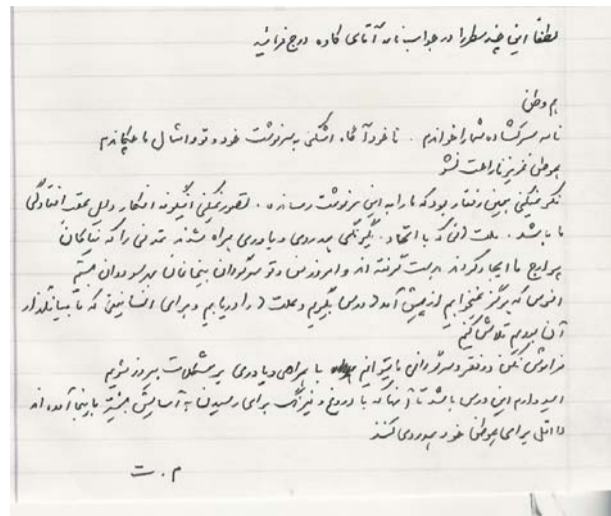 لطفاً این چند سطر را در جواب نامه آقای کاوه درج فرمائید
هم وطن
نامه سرگشاده شما را خواندم . ناخودآگاه اشکی به سرنوشت خود و تو و امثال ما چکاندم
هموطن عزیز ناراحت نشو
فکر نمیکنی همین رفتار بود که ما را به این سرنوشت رسانده . تصور نمیکنی اینگونه افکار دلیل عقب افتادگی
ما باشد . ملت هائی که با اتحاد . یکرنگی همدردی و یاوری همراه شدند تمدنی را که نیاکان
ما ایجاد کردند بدست گرفته اند و امروز من و تو سرگردان
افسوس که هرگز نمیخواهیم از پیش آمدها درس بگیریم و علت را دریابیم و برای انسانیتی که ما بنیانگذار
آن بودیم تلاش کنیم
فراموش نکن در فقر و سرگردانی نمیتوانیم با همراهی و یاوری بر مشکلات پیروز شویم
امیدوارم این درس باشد تا آنها که با دروغ و نیرنگ برای رسیدن به آسایش بیشتر باینجا آمده اند
لااقل برای هموطن خود همدردی کنند
م . ت